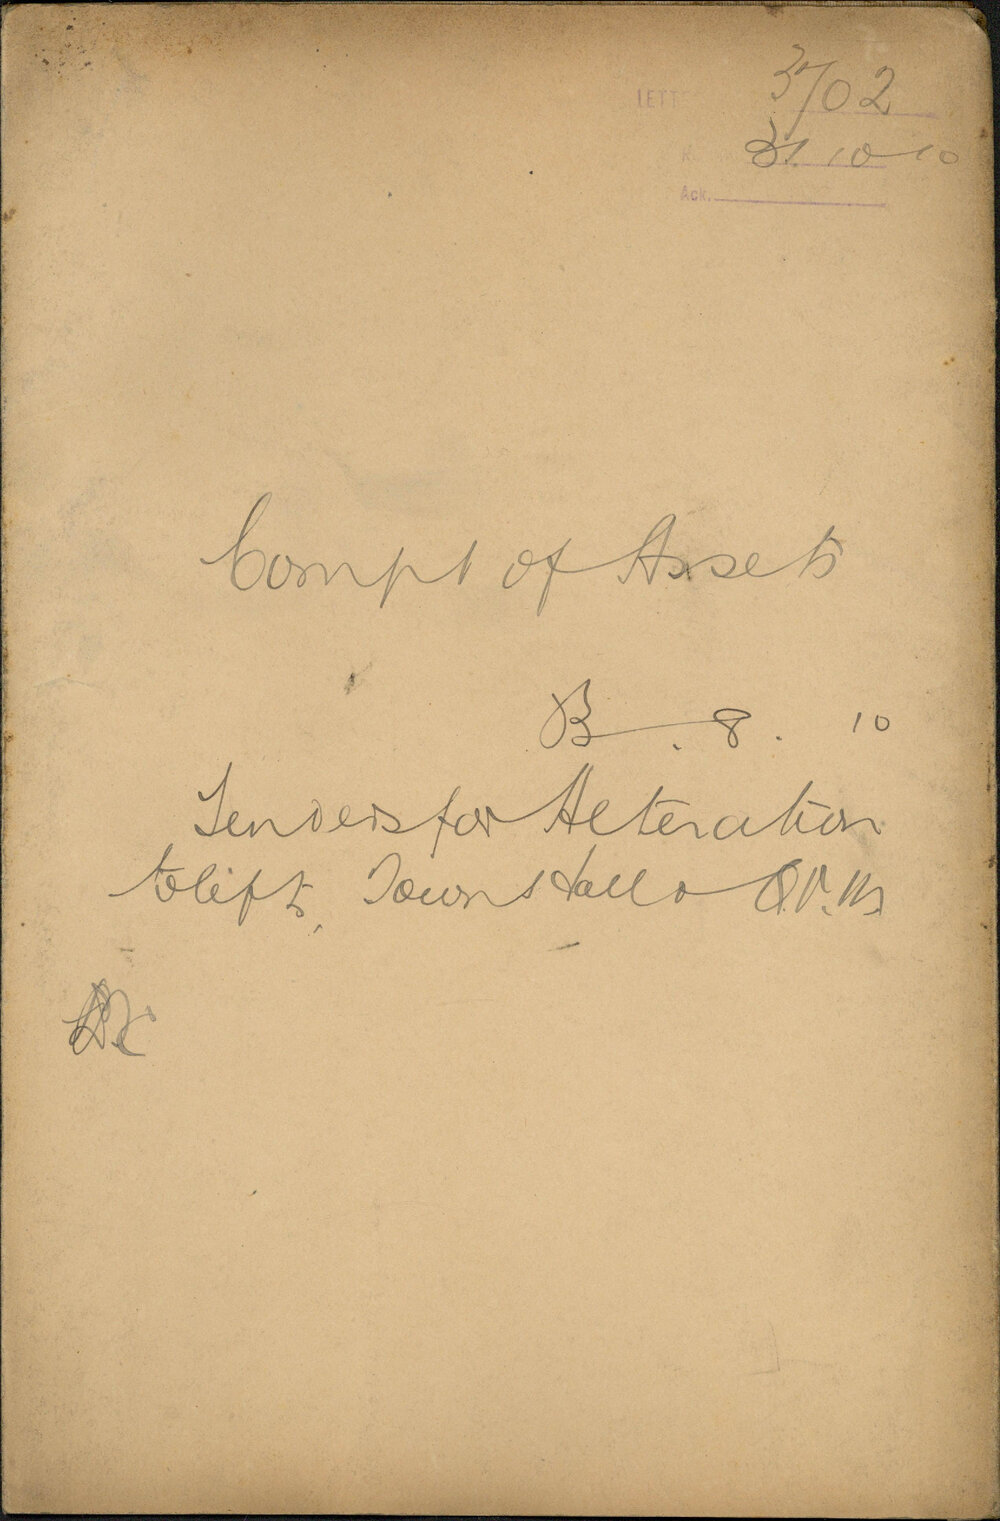 LETT 3702
R 31.10.10
Ack.
Compt of Assets
B . 8 . 10
Tenders for Alteration
to lifts, Town Hall & Q.V.M.